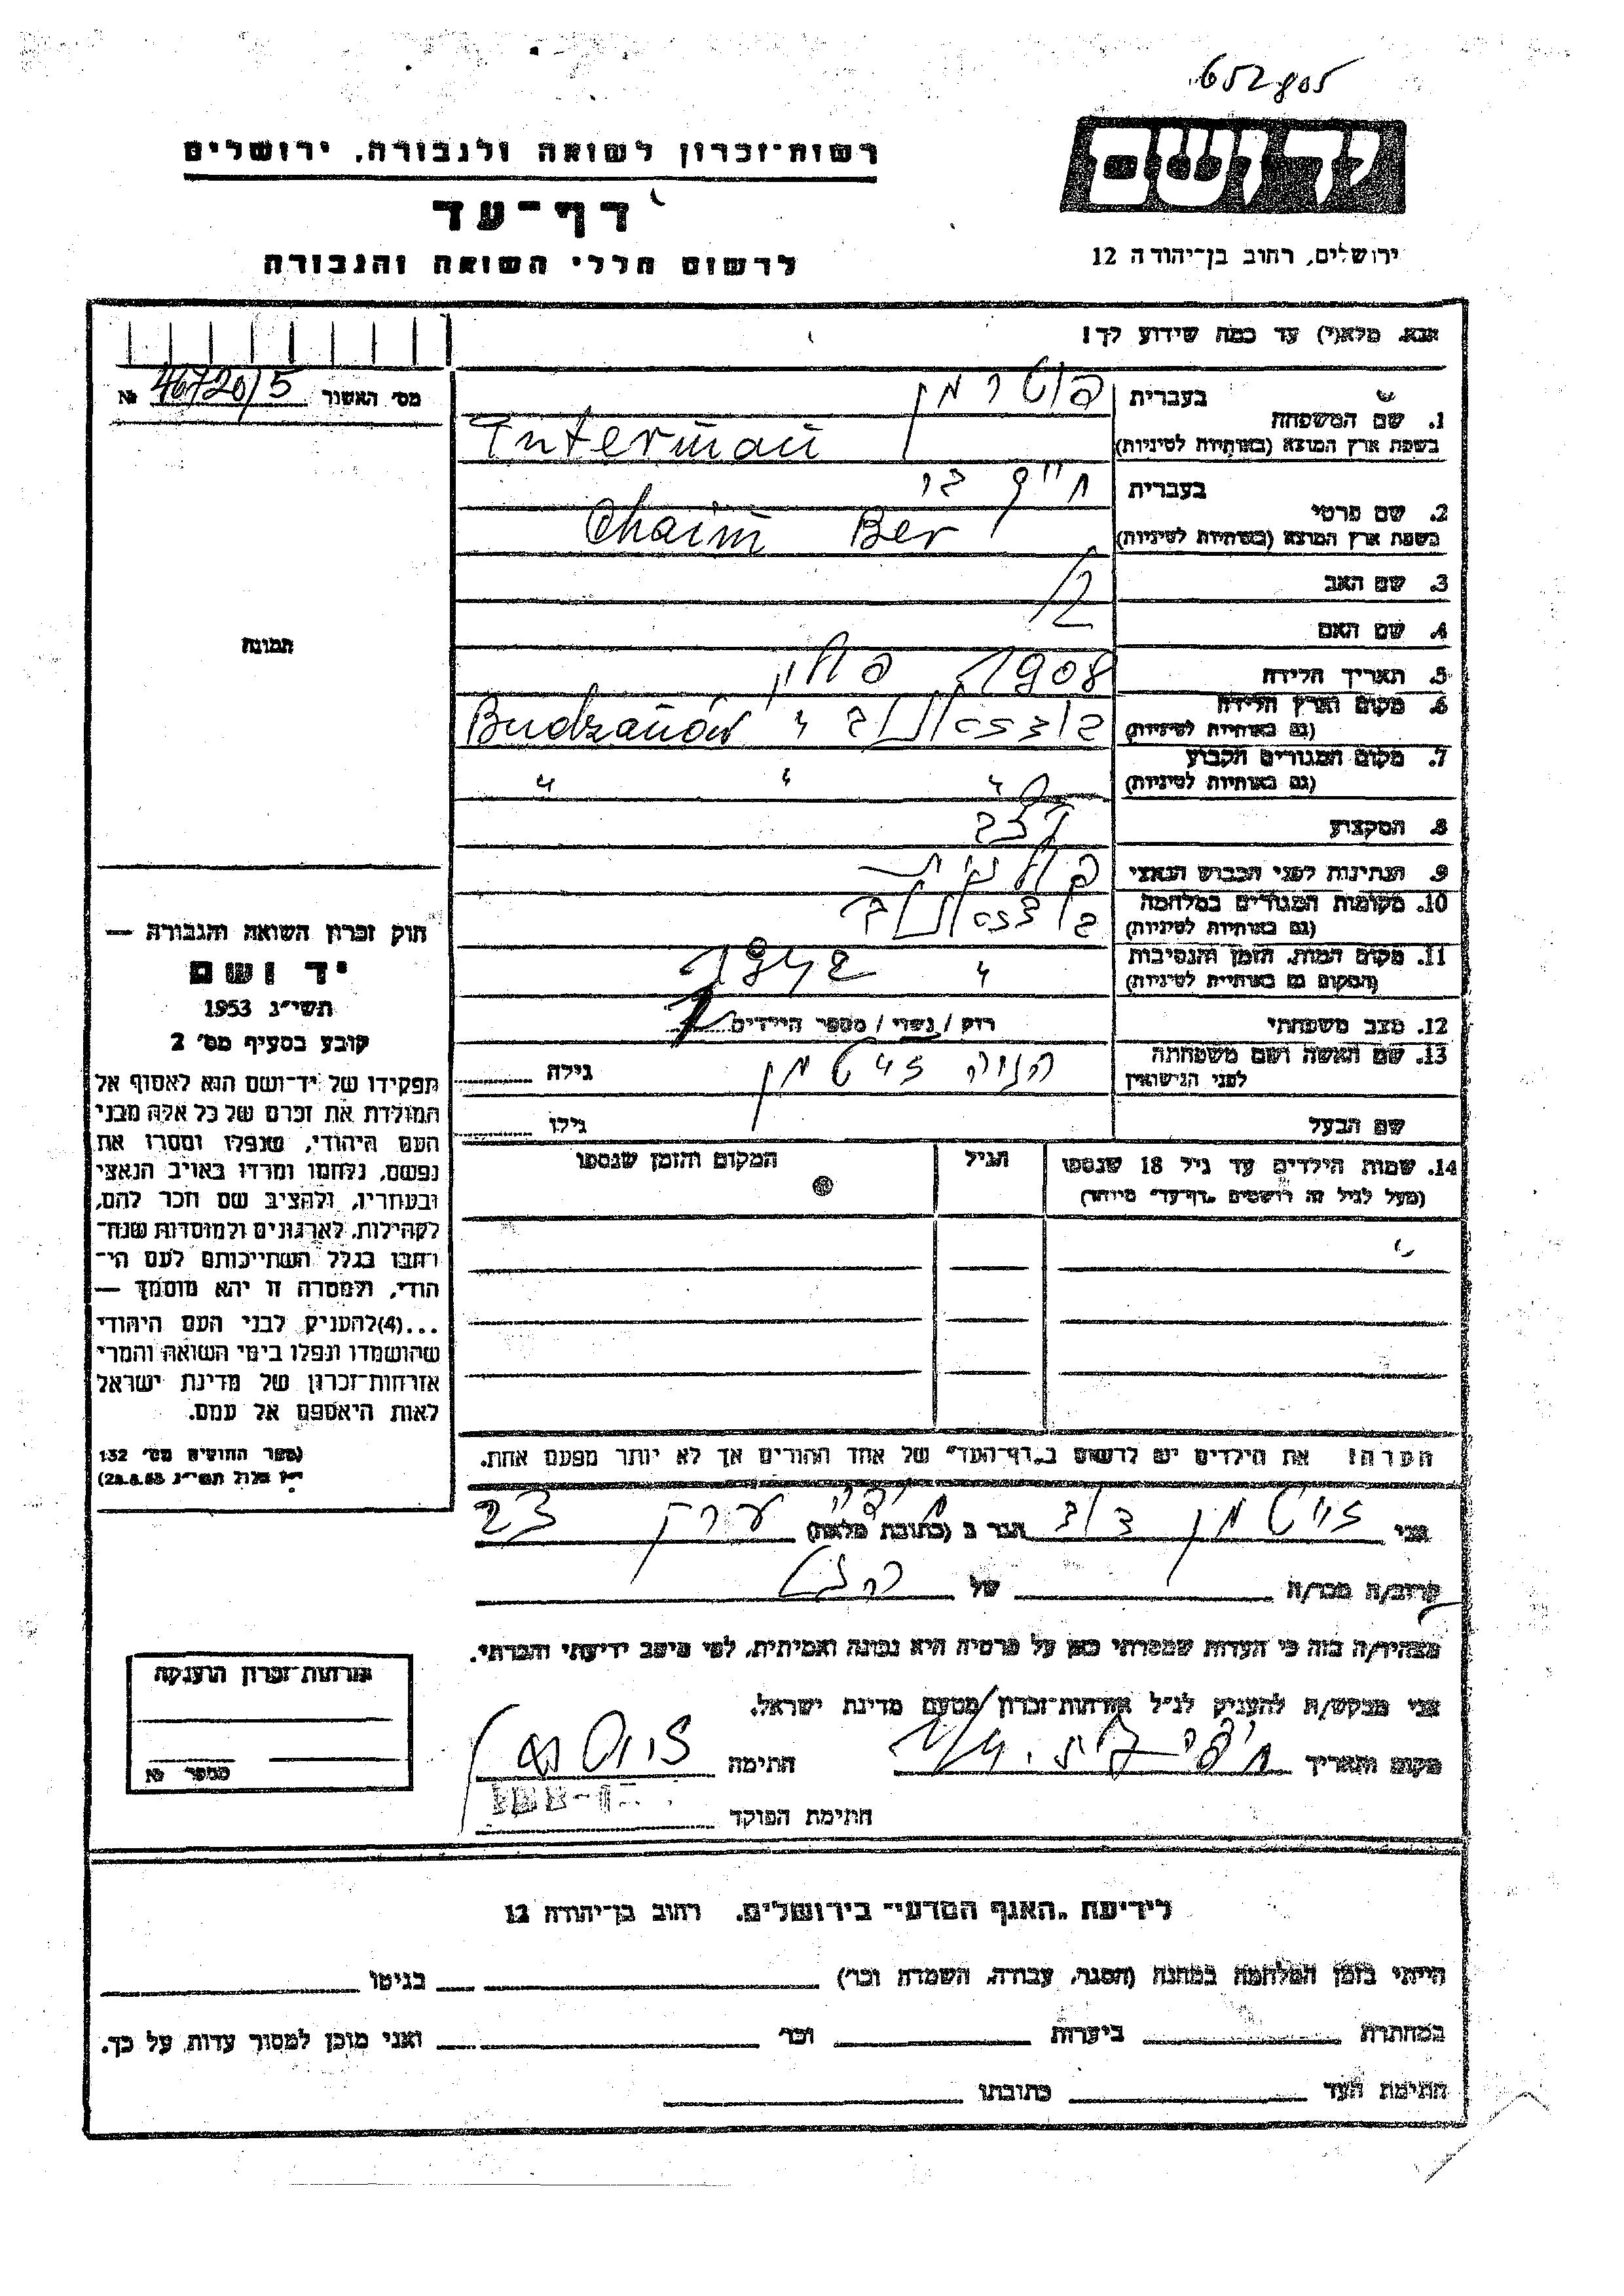 רשות-זכרון לשואה ולגבורה, ירושלים
דף-עד
לרשום חללי השואה והגבורה
יד ושם
ירושלים, רחוב בן-יהודה 12
אנא, מלא(י) עד כמה שידוע לך!
מס׳ האשור № 46720/5
1. שם המשפחה
בעברית
בשפת ארץ המוצא (באותיות לטיניות) Interman
2. שם פרטי
בעברית חיים בר
בשפת ארץ המוצא (באותיות לטיניות) Chaim Ber
3. שם האב
4. שם האם
5. תאריך הלידה 1908 פולין
6. מקום וארץ הלידה
(גם באותיות לטיניות) Budzanów
7. מקום המגורים הקבוע
(גם באותיות לטיניות) " " "
8. המקצוע
9. הנתינות לפני הכבוש הנאצי פולנית
10. מקומות המגורים במלחמה
(גם באותיות לטיניות)
11. מקום המות, הזמן והנסיבות
(המקום גם באותיות לטיניות) " 1942
12. מצב משפחתי רוק / נשוי / מספר הילדים
13. שם האשה ושם משפחתה
לפני הנישואין גילה
שם הבעל גילו
14. שמות הילדים עד גיל 18 שנספו
(מעל לגיל זה רושמים "דף-עד" מיוחד)
הגיל
המקום והזמן שנספו
תמונה
חוק זכרון השואה והגבורה —
יד ושם
תשי"ג 1953
קובע בסעיף מס׳ 2
תפקידו של יד-ושם הוא לאסוף אל
המולדת את זכרם של כל אלה מבני
העם היהודי, שנפלו ומסרו את
נפשם, נלחמו ומרדו באויב הנאצי
ובעוזריו, ולהציב שם וזכר להם,
לקהילות, לארגונים ולמוסדות שנח-
רבו בגלל השתייכותם לעם הי-
הודי, ולמטרה זו יהא מוסמך —
...(4) להעניק לבני העם היהודי
שהושמדו ונפלו בימי השואה והמרי
אזרחות-זכרון של מדינת ישראל
לאות היאספם אל עמם.
(ספר החוקים מס׳ 132
אלול תשי"ג 28.8.53)
הערה! את הילדים יש לרשום ב"דף-העד" של אחד ההורים אך לא יותר מפעם אחת.
אני הגר ב (כתובת מלאה) חיפה 23
קרוב/ה מכר/ה של
מצהיר/ה בזה כי העדות שמסרתי כאן על פרטיה היא נכונה ואמיתית, לפי מיטב ידיעתי והכרתי.
אני מבקש/ת להעניק לנ"ל אזרחות-זכרון מטעם מדינת ישראל.
מקום ותאריך חיפה חתימה
חתימת הפוקד
אזרחות-זכרון הוענקה
מספר №
לידיעת "האגף המדעי" בירושלים, רחוב בן-יהודה 12
הייתי בזמן המלחמה במחנה (הסגר, עבודה, השמדה וכו׳) בגיטו
במחתרת ביערות וכו׳ ואני מוכן למסור עדות על כך.
חתימת העד כתובתו